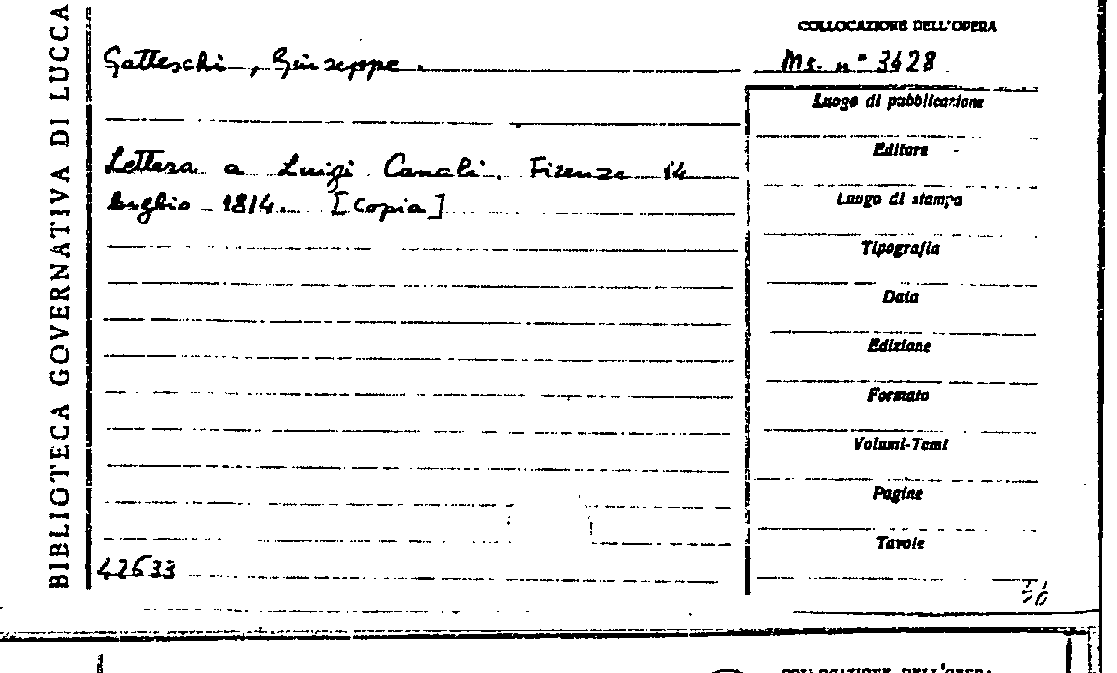 BIBLIOTECA GOVERNATIVA DI LUCCA
COLLOCAZIONE DELL'OPERA
Gatteschi, Giuseppe.
Ms. n° 3628
Luogo di pubblicazione
Lettera a Luigi Canali. Firenze 14
luglio 1814. [Copia]
Editore
Luogo di stampa
Tipografia
Data
Edizione
Formato
Volumi-Tomi
Pagine
Tavole
42633
COLLOCAZIONE DELL'OPERA